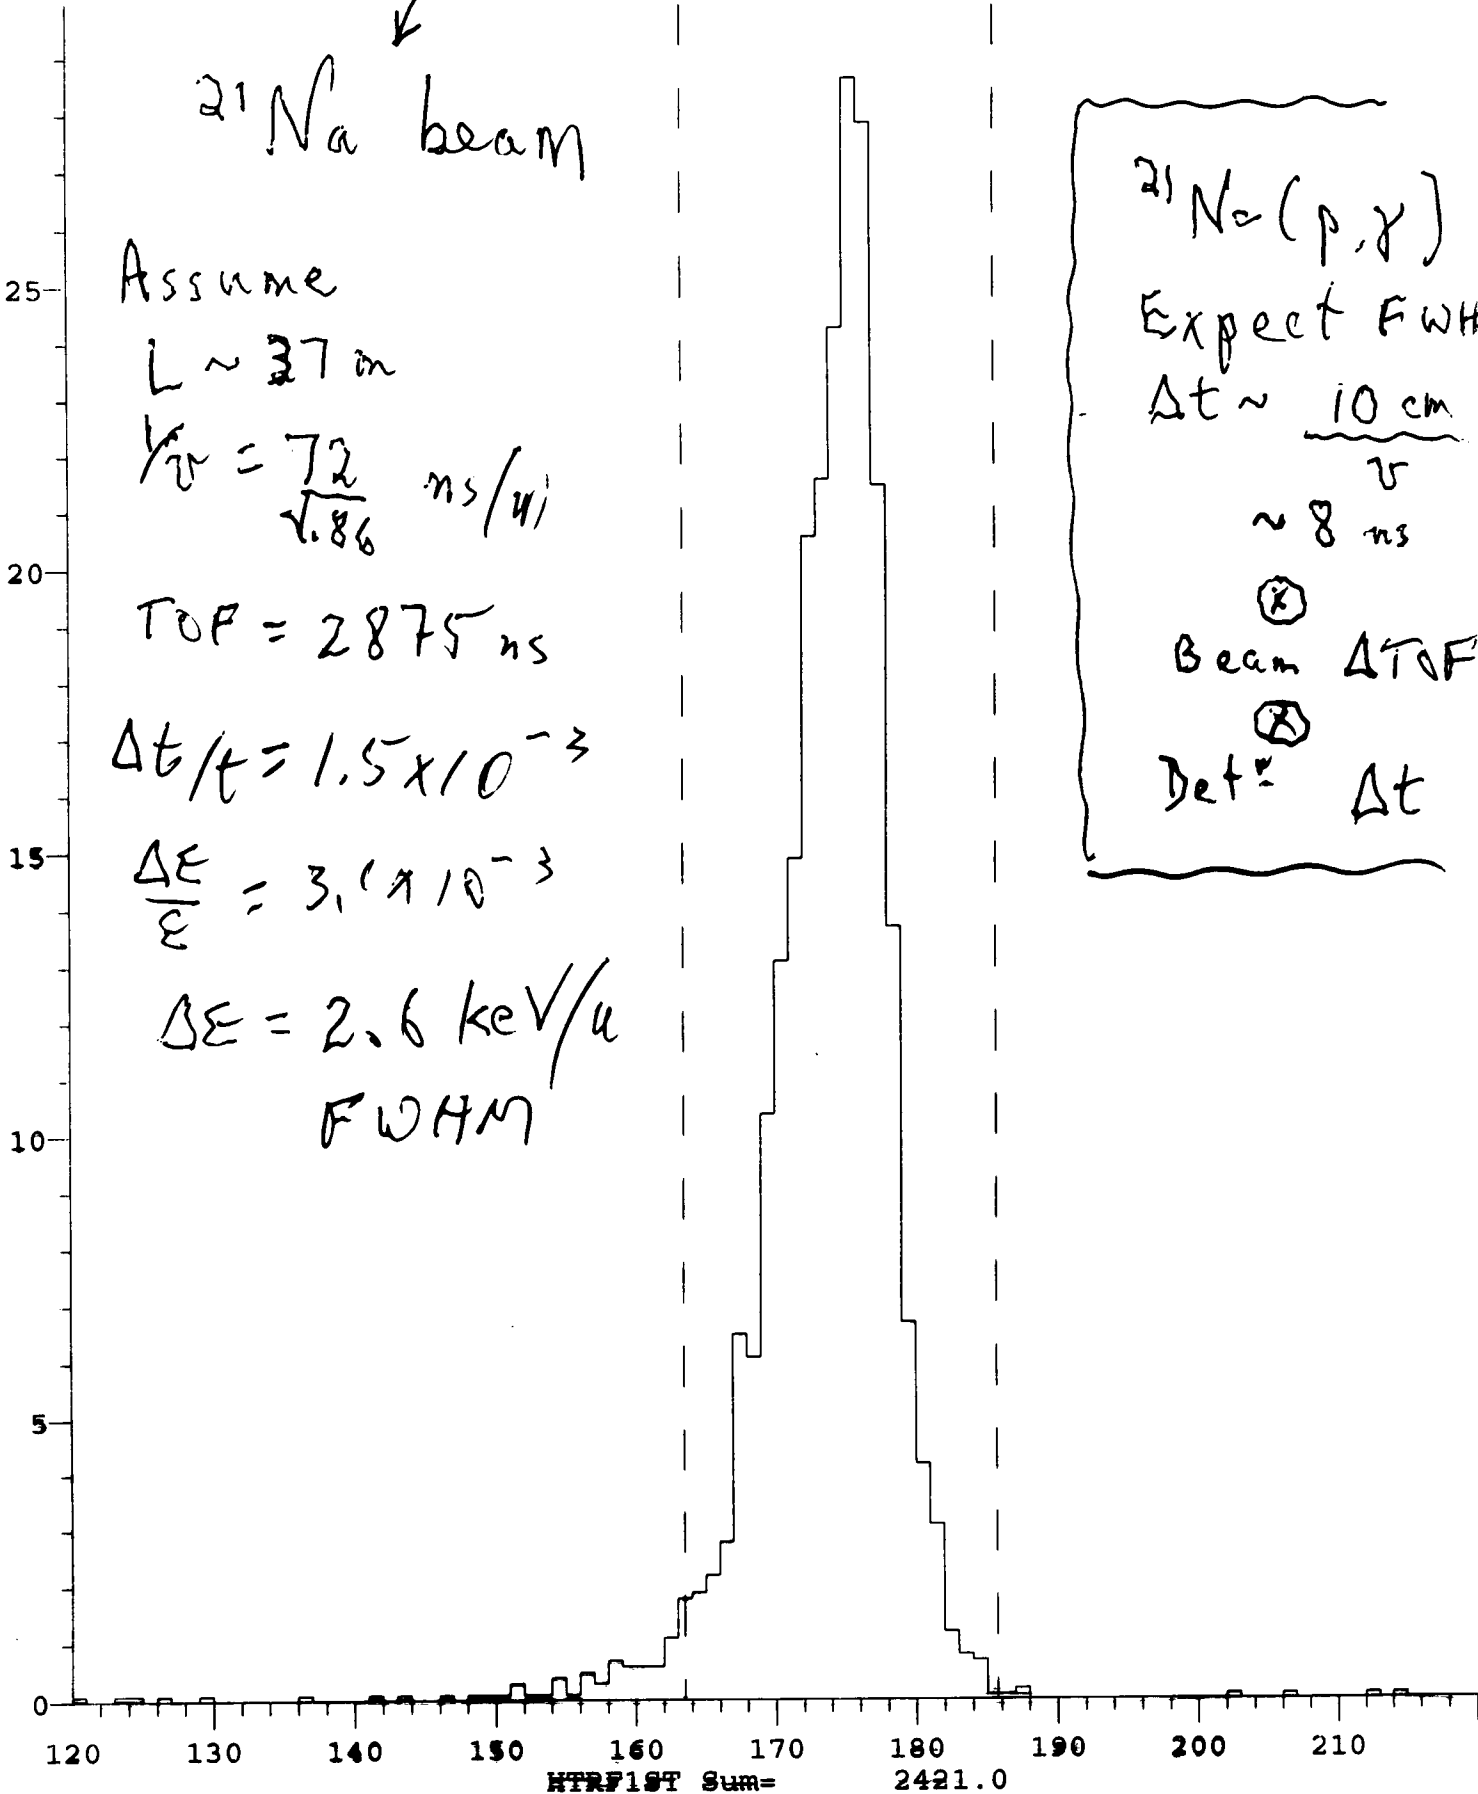 ²¹Na beam
Assume
L ~ 37 m
1/v = 72/√.86 ns/m
TOF = 2875 ns
Δt/t = 1.5x10⁻³
ΔE/E = 3.1x10⁻³
ΔE = 2.6 keV/u
FWHM
²¹Na(p,γ)
Expect FWH
Δt ~ 10 cm/v
~ 8 ns
⊗
Beam ΔTOF
⊗
Detʳ Δt
25
20
15
10
5
0
120 130 140 150 160 170 180 190 200 210
HTRF1ST Sum= 2421.0